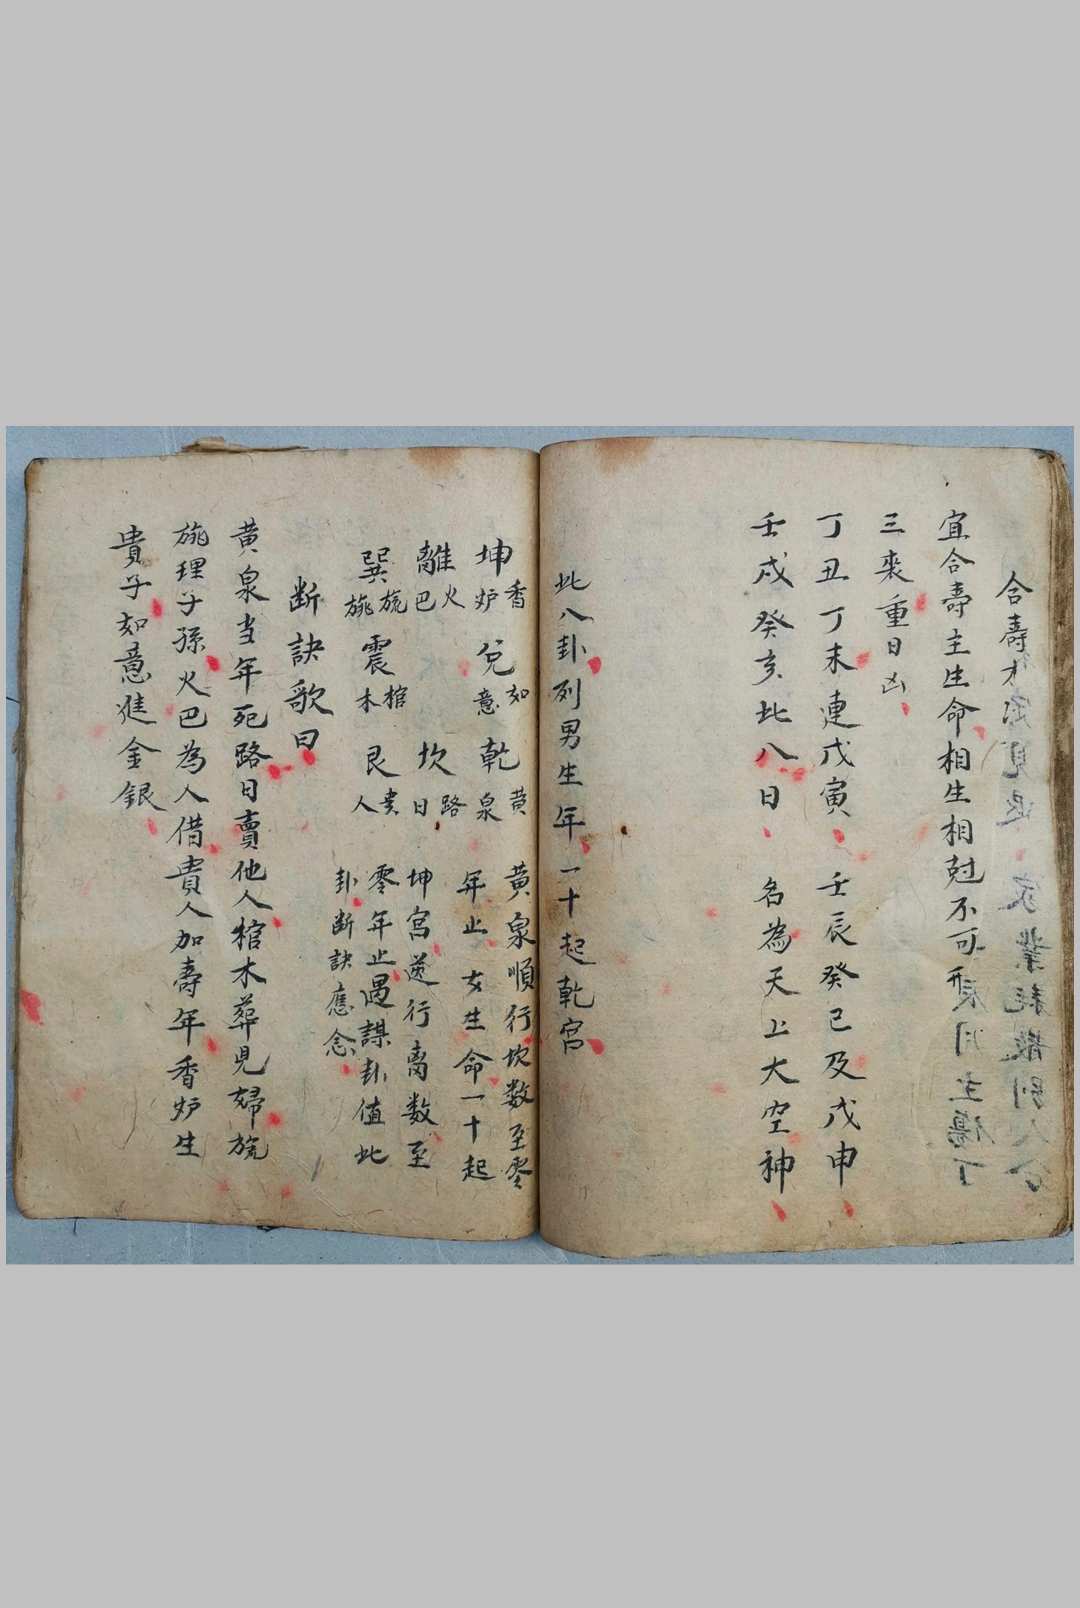 合壽木
宜合壽主生命相生相尅不可刑
三喪重日凶
丁丑丁未連戊寅 壬辰癸巳及戊申
壬戌癸亥此八日 名為天上大空神
此八卦列男生年一十起乾宮
坤 香炉 兌 如意 乾 黃泉
離 火巴 坎 路日
巽 旐旐 震 棺木 艮 贵人
黃泉順行坎数至零
年止女生命一十起
坤宮逆行离数至
零年止遇謀卦值此
卦断訣應念
断訣歌曰
黄泉当年死路日賣他人棺木葬見婦旐
旐理子孫火巴為人借貴人加壽年香炉生
貴子如意進金銀